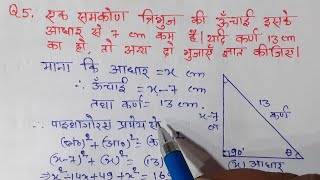 Q.5. एक समकोण त्रिभुज की ऊँचाई इसके
आधार से 7 cm कम है। यदि कर्ण 13 cm
का हो, तो अन्य दो भुजाएँ ज्ञात कीजिए।
माना कि आधार = x cm
∴ ऊँचाई = x-7 cm
तथा कर्ण = 13 cm.
∴ पाइथागोरस प्रमेय से
(x-7)² + (x)² = (13)
⇒ x² - 14x + 49 + x² = 16
x-7
13
कर्ण
90°
θ
(x) आधार